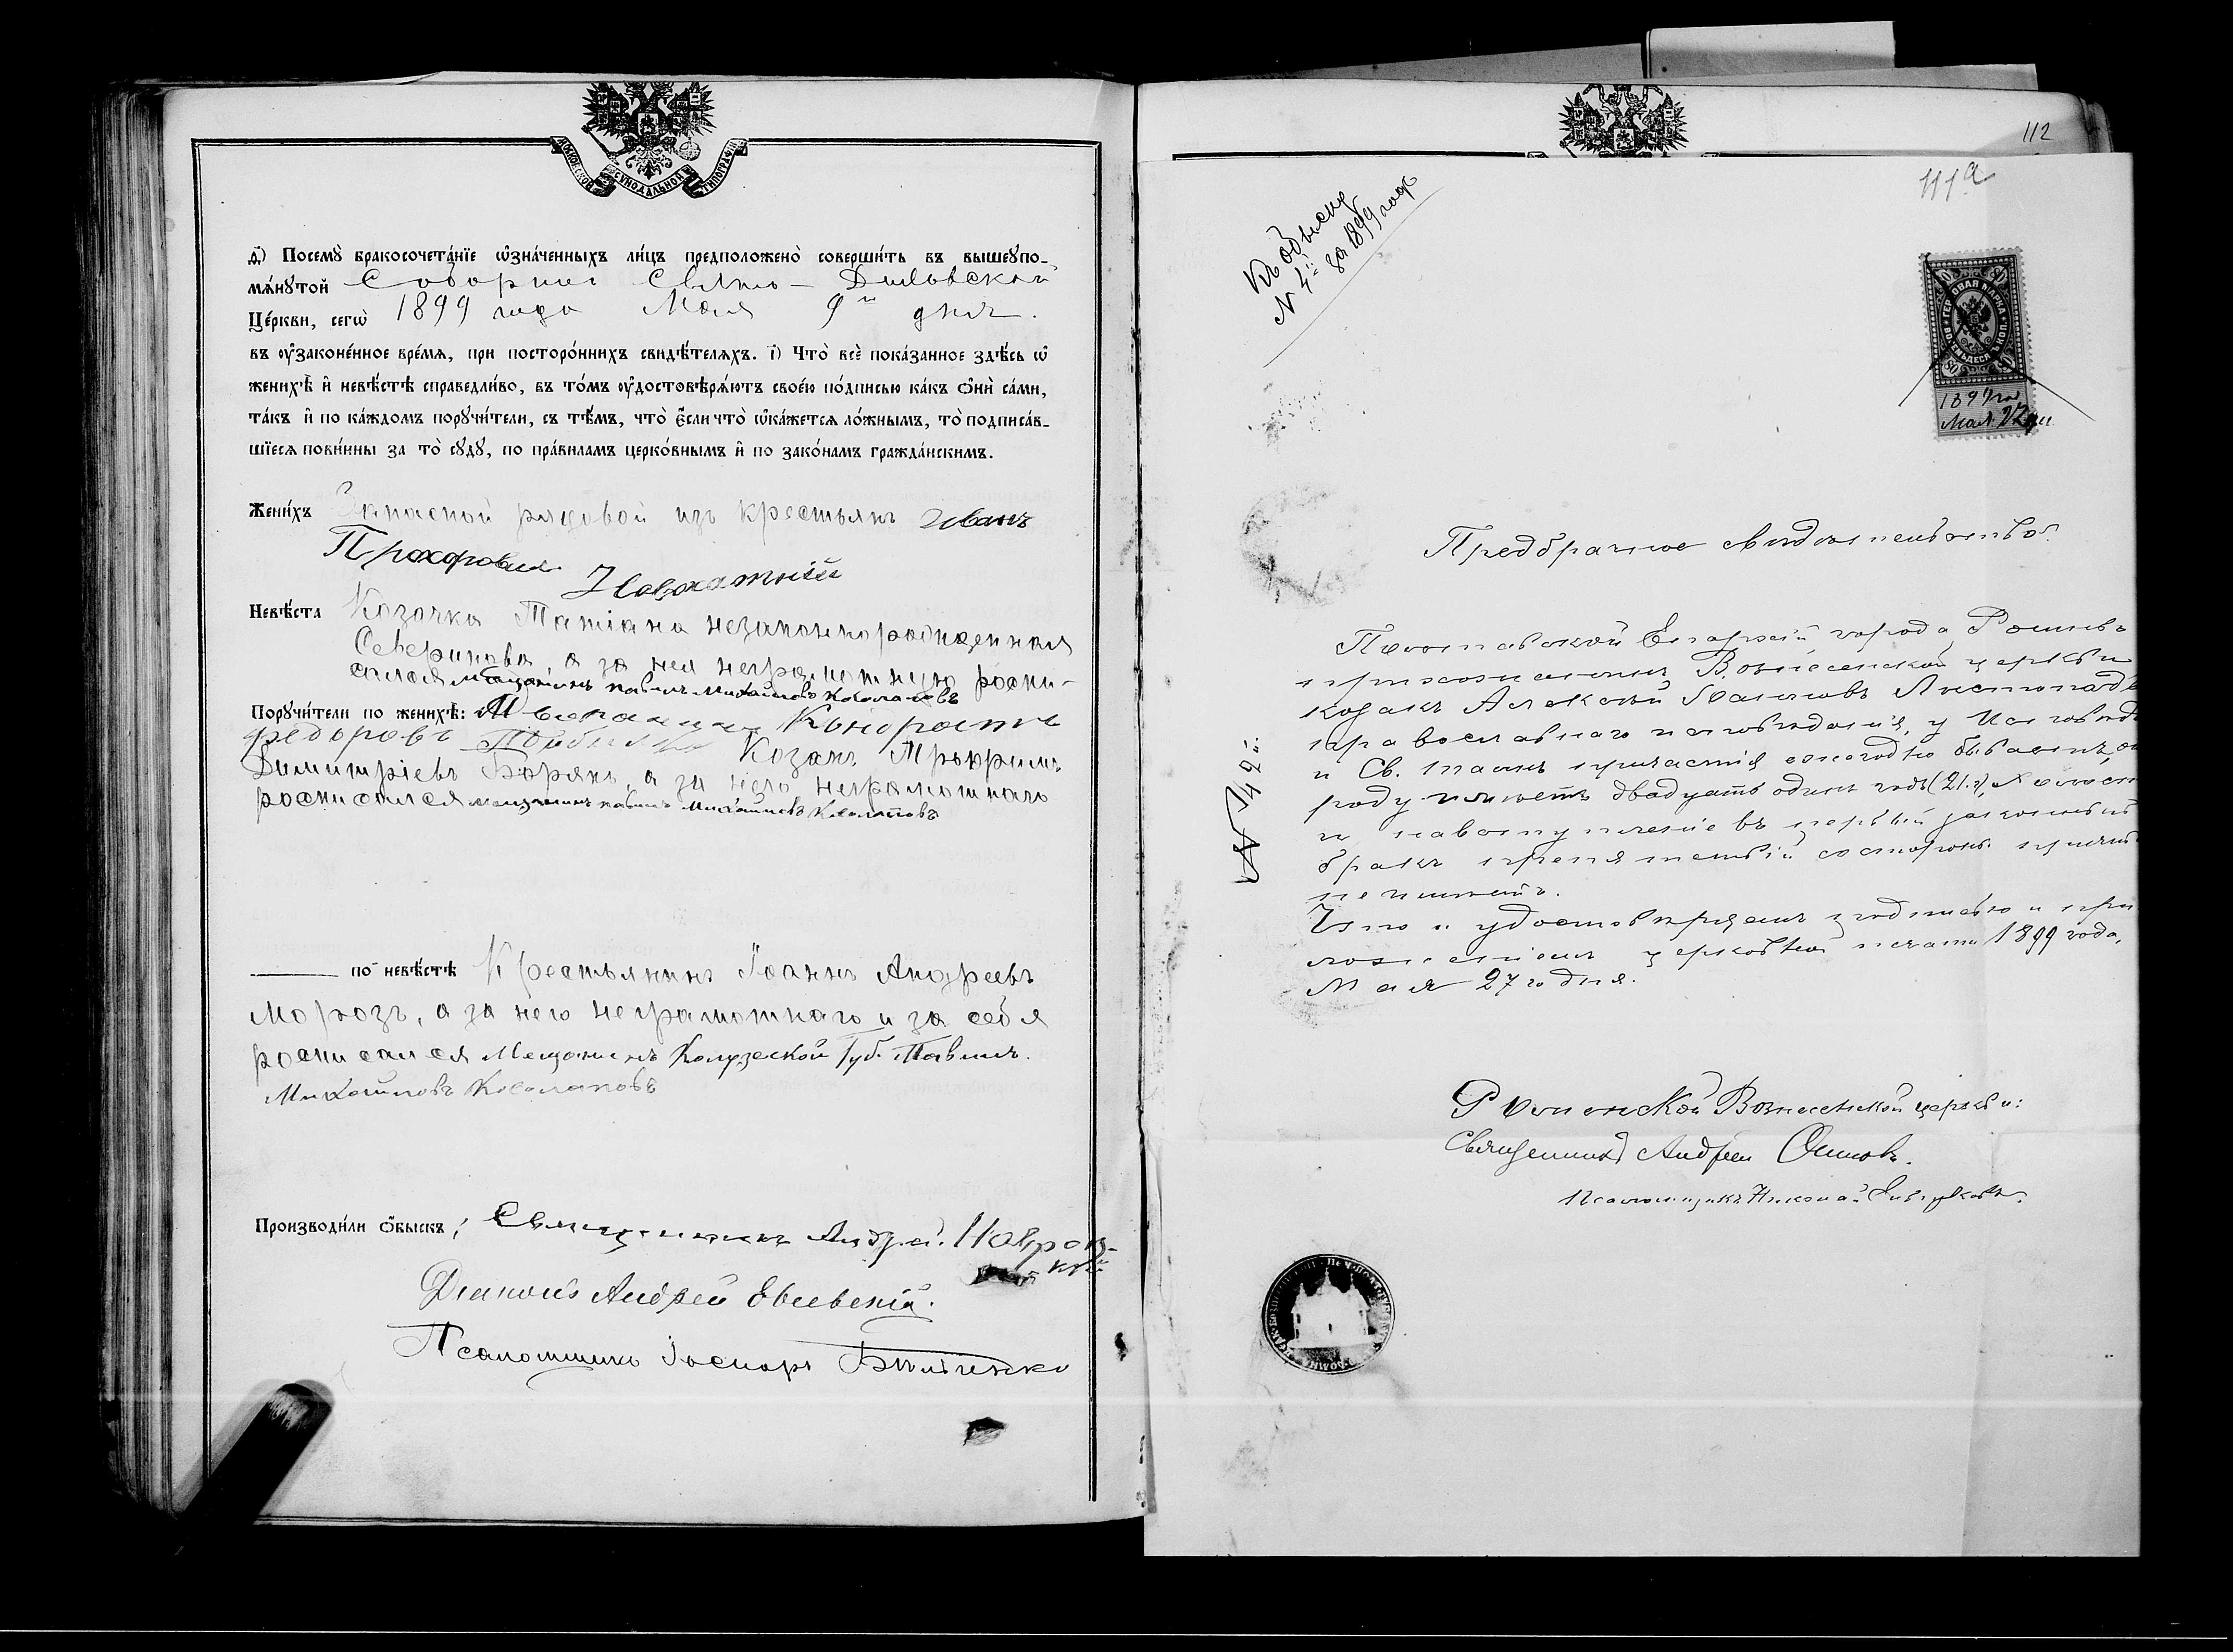 МОСКОВСКОЙ СѴНОДАЛЬНОЙ ТИПОГРАФІИ
д҃) Посемꙋ̀ бракосочета́нїе ѡ҆зна́ченныхъ ли́цъ предположено̀ соверши́ть въ вышеꙋпо-
мѧ́нꙋтой Соборной Свято-
Це́ркви, сегѡ̀ 1899 года Мая 9го дня.
въ ᲂу҆законе́нное вре́мѧ, при посторо́ннихъ свидѣ́телѧхъ. і҃) Что̀ всѐ пока́занное здѣ́сь ѡ҆
женихѣ̀ и҆ невѣ́стѣ справедли́во, въ то́мъ ᲂу҆достовѣрѧ́ютъ свое́ю по́дписью ка́къ ѻ҆нѝ са́ми,
та́къ и҆ по ка́ждомъ порꙋчи́тели, съ тѣ́мъ, что̀ є҆́сли что̀ ѡ҆ка́жетсѧ ло́жнымъ, то̀ подписа́в-
шїесѧ пови́нны за то̀ сꙋдꙋ̀, по пра́виламъ церко́внымъ и҆ по зако́намъ гражда́нскимъ.
Жени́хъ Запасной рядовой изъ крестьянъ Иванъ
Прохоровъ Новохатній
Невѣ́ста Козачка Татіана незаконнорожденная
Северинова, а за нея неграмотную роспи-
сался мѣщанинъ Павелъ Михайловъ Косолаповъ
Порꙋчи́тели по женихѣ̀: Мѣщанинъ Кондратъ
Федоровъ Козакъ Трофимъ
Димитріевъ Борякъ, а за него неграмотнаго
росписался мещанинъ Павелъ Михайловъ Косолаповъ
по невѣ́стѣ Крестьянинъ Іоаннъ Андреевъ
Морозъ, а за него неграмотнаго и за себя
росписался Мещанинъ Калузской Губ. Павелъ
Михайловъ Косолаповъ
Производи́ли ѻ҆́быскъ: Священникъ Андрей Навроц-
кій
Діаконъ Андрей Евсевскій.
Псаломщикъ
112
111а
Къ обыску
№ 4й за 1899 годъ
ГЕРБОВАЯ МАРКА ВОСЕМЬДЕСЯТЪ КОП.
80
1899 го
Мая 27 дня
№ 142й.
Предбрачное свидетельство.
Полтавской Епархіи, города Роменъ
прихожанинъ Вознесенской церкви
козакъ Алексей Листопадъ
православнаго исповеданія, у Исповеди
и Св. таинъ причастія ежегодно бываетъ, отъ
роду имеетъ двадцать одинъ годъ (21 г), холостъ
и на вступленіе въ первый законный
бракъ препятствій со стороны причта
не имеетъ.
Что и удостоверяемъ подписью и при-
ложеніемъ церковной печати 1899 года,
Мая 27го дня.
Роменской Вознесенской церкви:
Священникъ Андрей
Псаломщикъ Николай